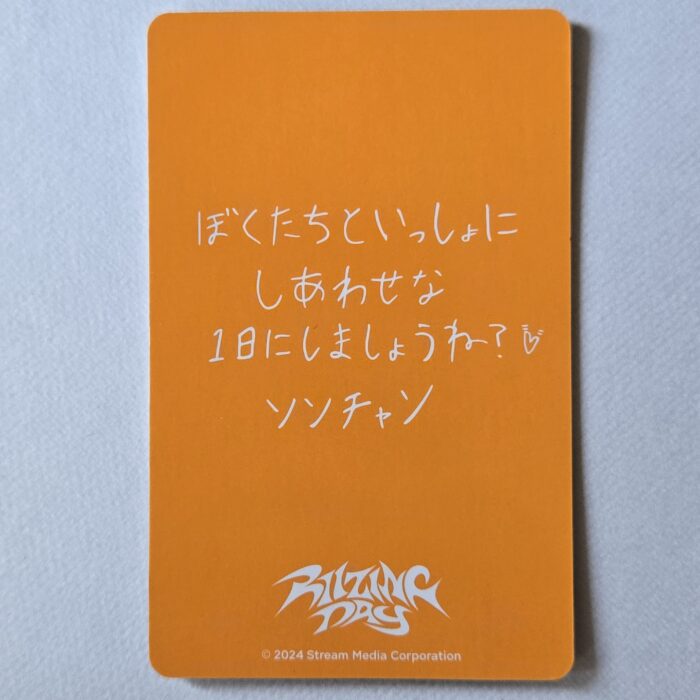 ぼくたちといっしょに
しあわせな
1日にしましょうね?
ソンチャン
RIIZING DAY
© 2024 Stream Media Corporation